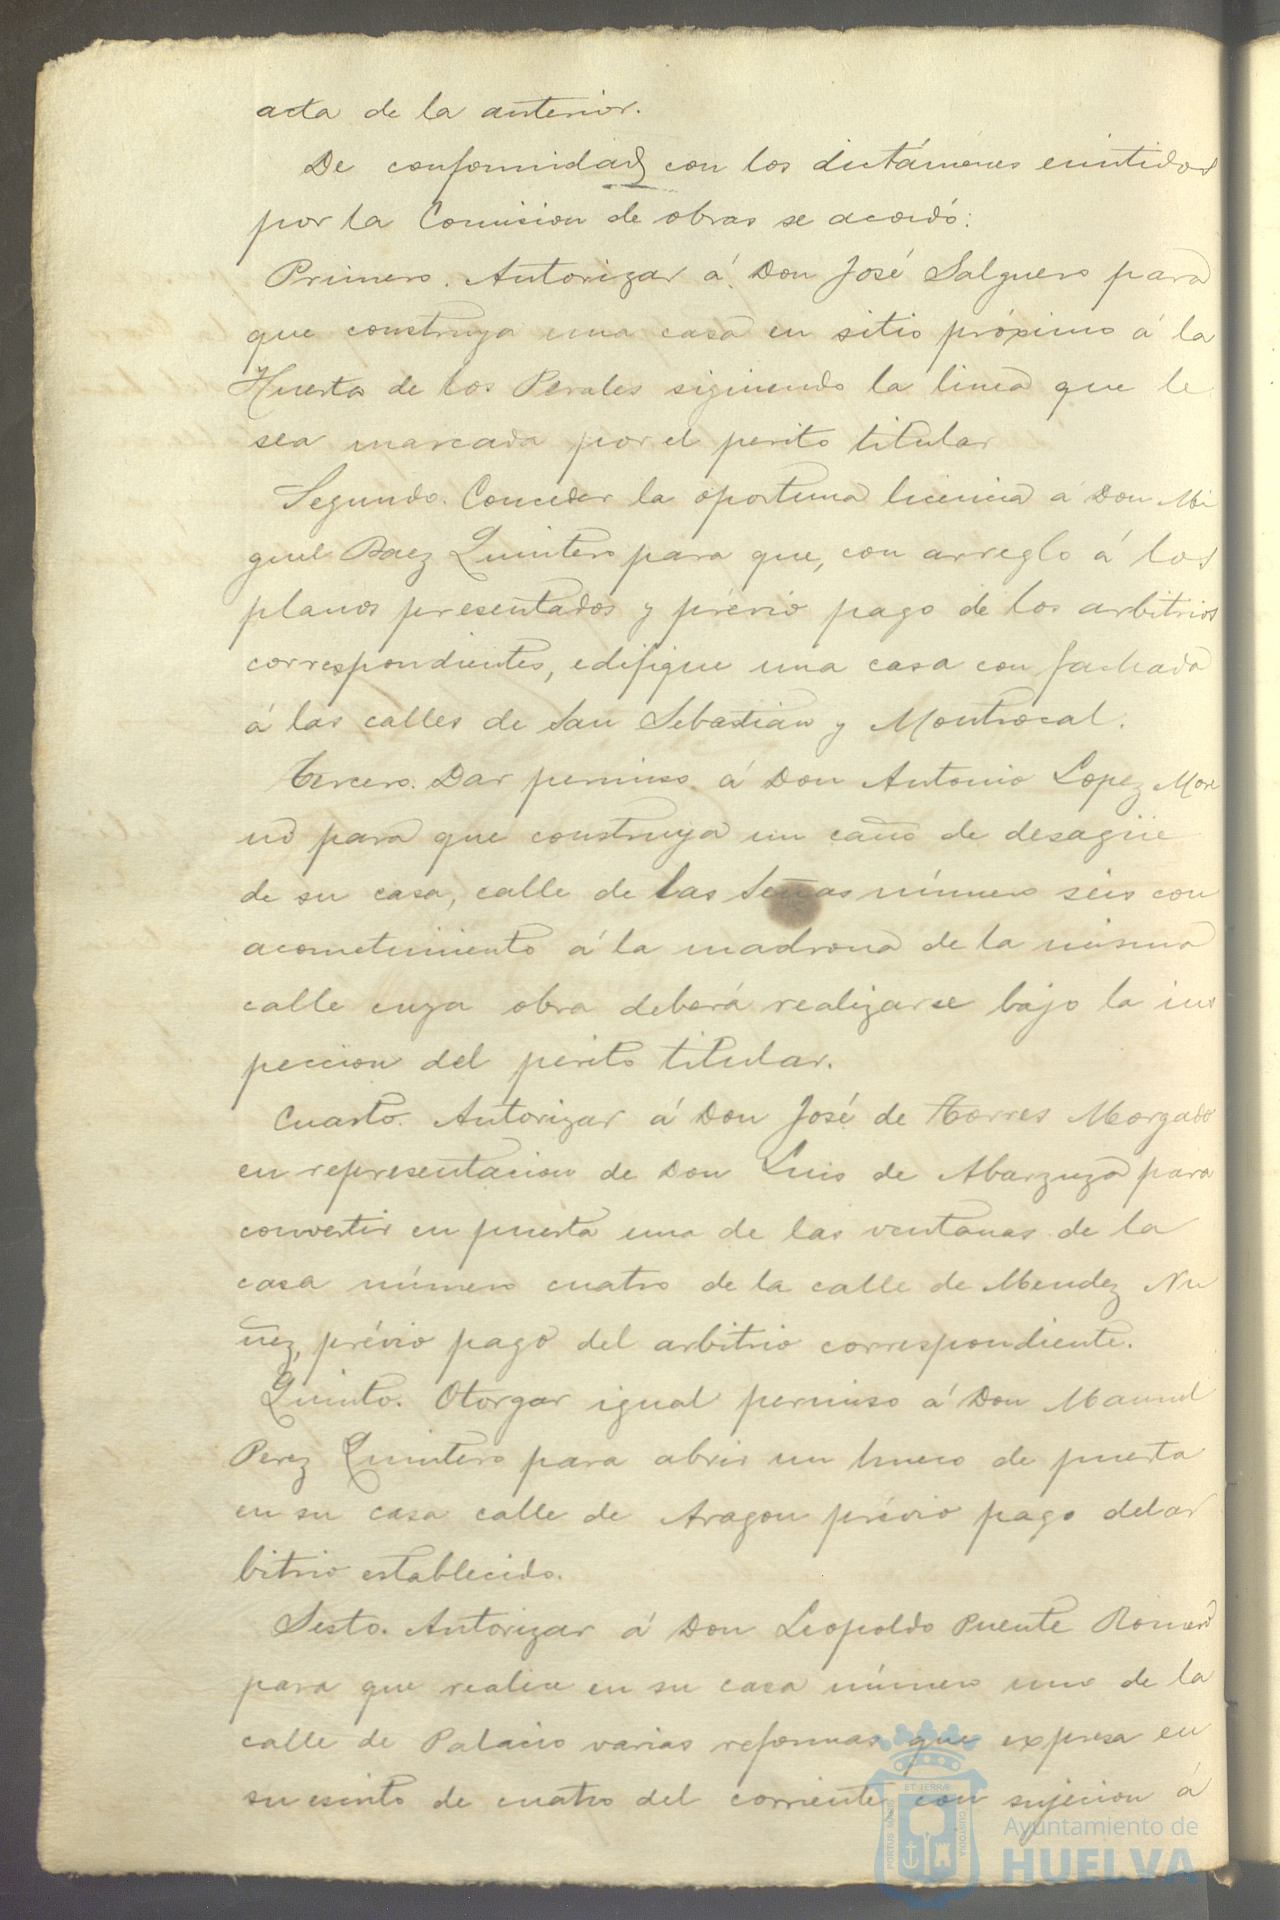 acta de la anterior.
De conformidad con los dictámenes emitidos
por la Comision de obras se acordó:
Primero. Autorizar á Don José Salguero para
que construya una casa en sitio próximo á la
Huerta de los Perales siguiendo la linea que le
sea marcada por el perito titular
Segundo. Conceder la oportuna licencia á Don Mi
guel Baez Quintero para que, con arreglo á los
planos presentados y prévio pago de los arbitrios
correspondientes, edifique una casa con fachada
á las calles de San Sebastian y Montrocal.
Tercero. Dar permiso á Don Antonio Lopez More
no para que construya un caño de desagüe
de su casa, calle de las Señas número seis con
acometimiento á la madrona de la misma
calle cuya obra deberá realizarse bajo la ins
peccion del perito titular.
Cuarto. Autorizar á Don José de Torres Morgado
en representacion de Don Luis de Abarzuza para
convertir en puerta una de las ventanas de la
casa número cuatro de la calle de Mendez Nu
ñez, prévio pago del arbitrio correspondiente.
Quinto. Otorgar igual permiso á Don Manuel
Perez Quintero para abrir un hueco de puerta
en su casa calle de Aragon prévio pago del ar
bitrio establecido.
Sesto. Autorizar á Don Leopoldo Puente Romero
para que realice en su casa número uno de la
calle de Palacio varias reformas que expresa en
su escrito de cuatro del corriente con sujecion á
PORTUS MARIS
ET TERRÆ
CUSTODIA
Ayuntamiento de
HUELVA